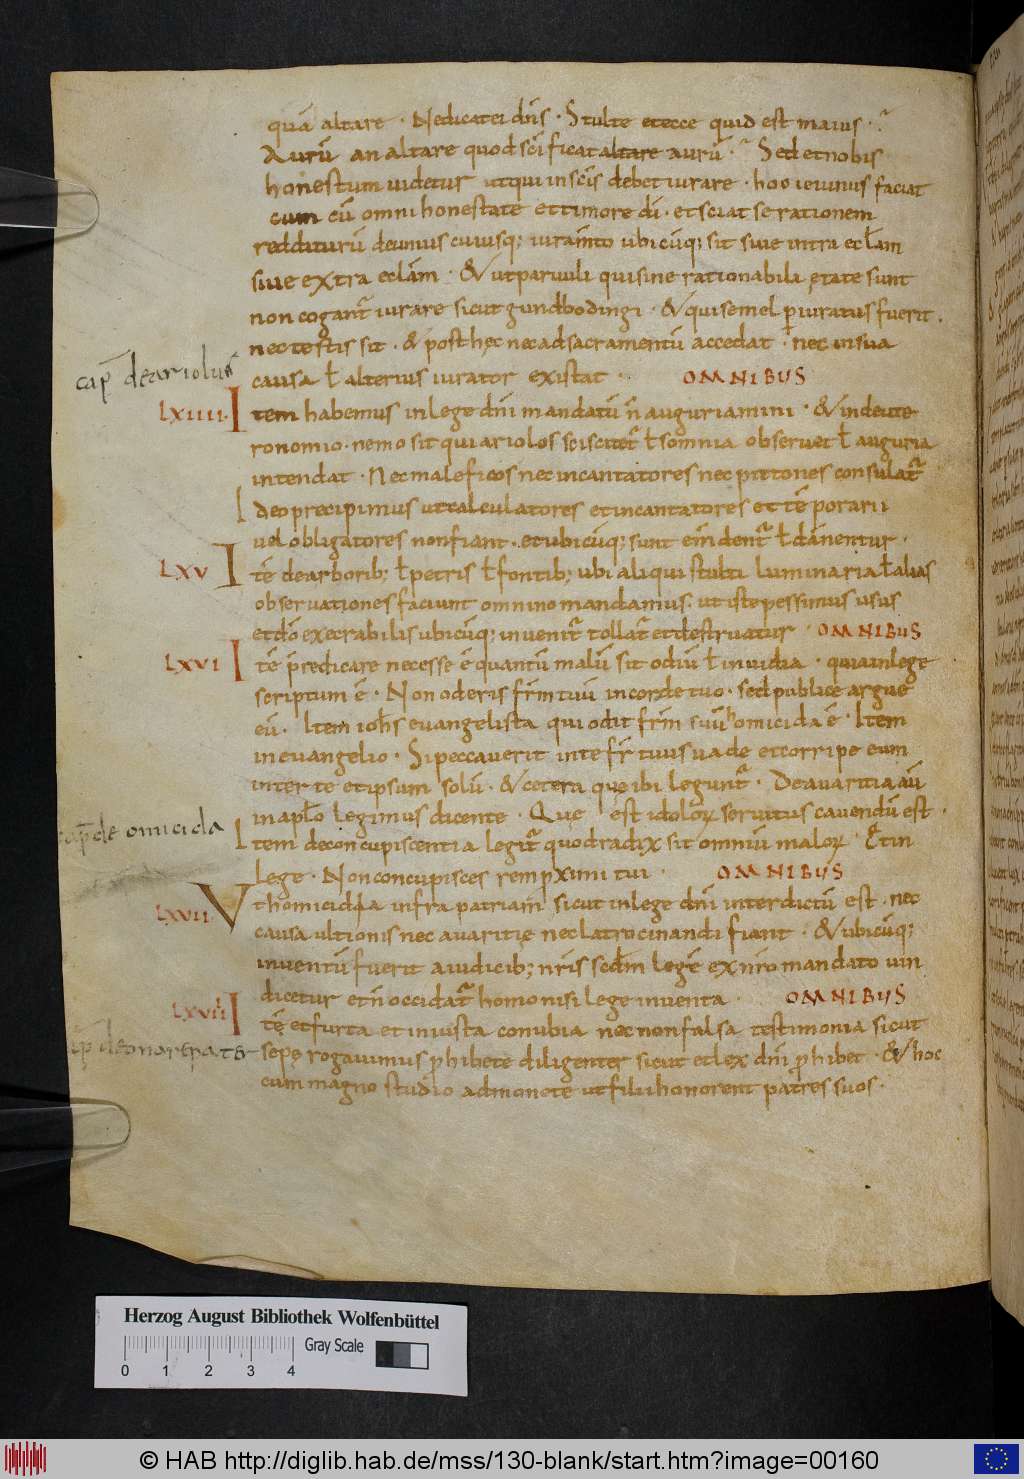 quā altare · Nedicatei dn̄s · Stulte etecce quid est maius ·
Aurū an altare quod sc̄ificat altare aurū · Sed et nobis
honestum uidetur ut qui in sc̄is debet iurare · hoc ieiunus faciat
cum cū omni honestate et timore dī · et sciat se rationem
redditurū deumus cuiusq; iuram̄to ubicūq; sit siue intra eccl̄am
siue extra eclam̄ · & ut paruuli qui sine rationabili ętate sunt
non cogant̄ iurare sicut gundbodingi · & qui semel p̄iuratus fuerit ·
nec testis sit · & post hęc nec ad sacramentū accedat · nec in sua
cap̄ de ariolus
causa ł alterius iurator existat · OMNIBUS
LXIIII · Item habemus in lege dn̄i mandatū n̄ auguriamini · & in deute
ronomio · nemo sit qui ariolos sciscitet̄ ł somnia obseruet ł auguria
intendat · Nec maleficos nec incantatores nec pittones consulat̄
Ideo precipimus ut calculatores et incantatores et tēporarii
uel obligatores non fiant · et ubicūq; sunt em̄dent̄ ł dānentur ·
LXV Itē de arborib; ł petris ł fontib; ubi aliqui stulti luminaria ł alias
obseruationes faciunt omnino mandamus · ut iste pessimus usus
et dō execrabilis ubicūq; inuenit̄ tollat̄ et destruatur · OMNIBUS
LXVI Itē p̄redicare necesse ē quantū malū sit odiū ł inuidia · quia in lege
scriptum ē · Non oderis fr̄m tuū in corde tuo · sed publice argue
eū · Item ioh̄s euangelista qui odit fr̄m suū homicida ē · Item
in euangelio · Si peccauerit in te fr̄ tuus uade et corripe eum
inter te et ipsum solū · & cetera que ibi legunt̄ · De auaritia aū
in apło legimus dicente · Quę est idoloꝝ seruitus cauendū est ·
cap̄ de omicida
Item de concupiscentia legit̄ quod radix sit omniū maloꝝ · Et in
lege · Non concupisces rem p̄ximi tui · OMNIBUS
LXVII · Vt homicidia infra patriam sicut in lege dn̄i interdictū est · nec
causa ultionis nec auaritię nec latrocinandi fiant · & ubicūq;
inuentū fuerit a iudicib; nr̄is scdm̄ legē ex nr̄o mandato uin
dicetur et n̄ occidat̄ homo nisi lege inuenta · OMNIBUS
LXVIII Itē et furta et iniusta conubia nec non falsa testimonia sicut
cap̄ de onore patr
sepe rogauimus p̄hibete diligenter sicut et lex dn̄i p̄hibet · & hoc
cum magno studio admonete ut filii honorent patres suos ·
Herzog August Bibliothek Wolfenbüttel
Gray Scale
0 1 2 3 4
© HAB http://diglib.hab.de/mss/130-blank/start.htm?image=00160